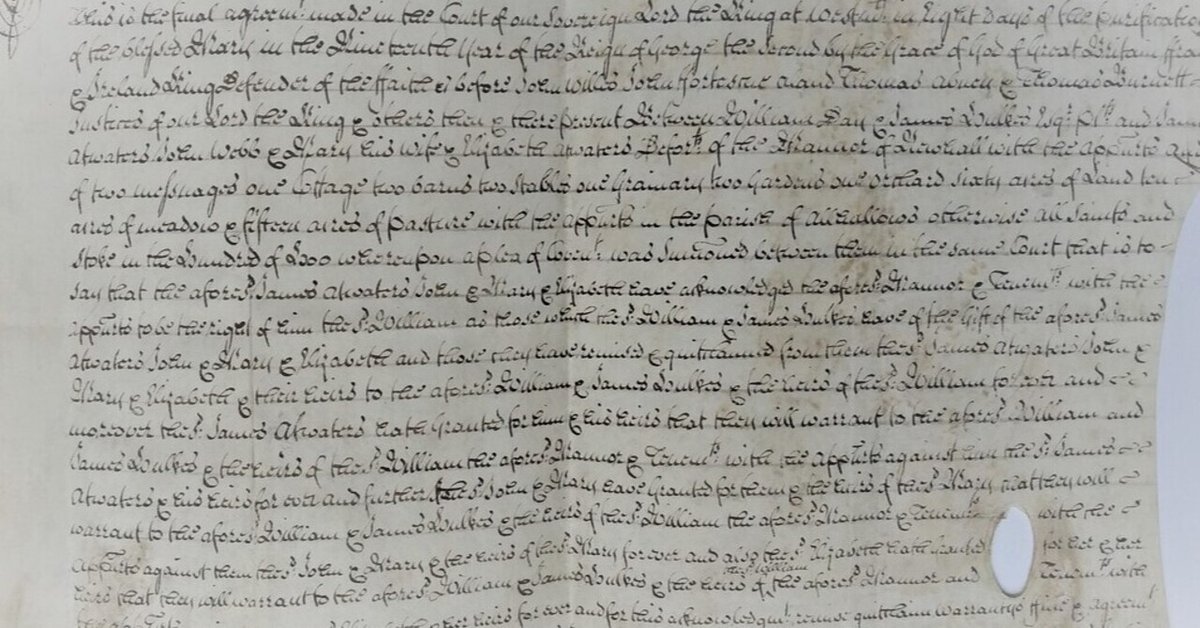 This is the final agreemt made in the Court of our Sovereign Lord the King at Westmr in Eight Days of the purificatio
of the blessed Mary in the Nineteenth Year of the Reign of George the Second by the Grace of God of Great Britain ffra
& Ireland King Defender of the ffaith &c before John Willes John ffortescue Aland Thomas Abney & Thomas Burnett
Justices of our Lord the King & others then & there present Between William Day & James Esqr. Plts and Jam
Atwaters John Webb & Mary his wife & Elizabeth Atwaters Deforts of the Mannor of Newhall with the appurts and
of two messuages one Cottage two barns two stables one Grainary two Gardens one orchard sixty acres of Land ten
acres of meadow & fifteen acres of pasture with the appurts in the parish of Allhallows otherwise all Saints and
Stoke in the Hundred of Hoo whereupon a plea of Covent. was Sumoned between them in the same Court that is to
say that the aforesd. James Atwaters John & Mary & Elizabeth have acknowledged the aforesd. Mannor & Tenemts with the
appurts to be the right of him the sd. William as those which the sd. William & James have of the Gift of the aforesd. James
Atwaters John & Mary & Elizabeth and those they have remised & quitclaimed from them the sd. James Atwaters John &
Mary & Elizabeth & their heirs to the aforesd. William & James & the heirs of the sd. William for ever and
moreover the sd. James Atwaters hath Granted for him & his heirs that they will warrant to the aforesd. William and
James & the heirs of the sd. William the aforesd. Mannor & Tenemts with the appurts against him the sd. James
Atwaters & his heirs for ever and further the sd. John & Mary have Granted for them & the heirs of the sd. Mary that they will
warrant to the aforesd. William & James & the heirs of the sd. William the aforesd. Mannor & Tenemts with the
appurts against them the sd. John & Mary & the heirs of the sd. Mary for ever and also the sd. Elizabeth hath Granted for her & her
the sd. William
heirs that they will warrant to the aforesd. William & James & the heirs of the aforesd. Mannor and Tenemts with
the appurts her heirs for ever and for this acknowledgmt. remise quitclaim warrantys ffine & agreemt